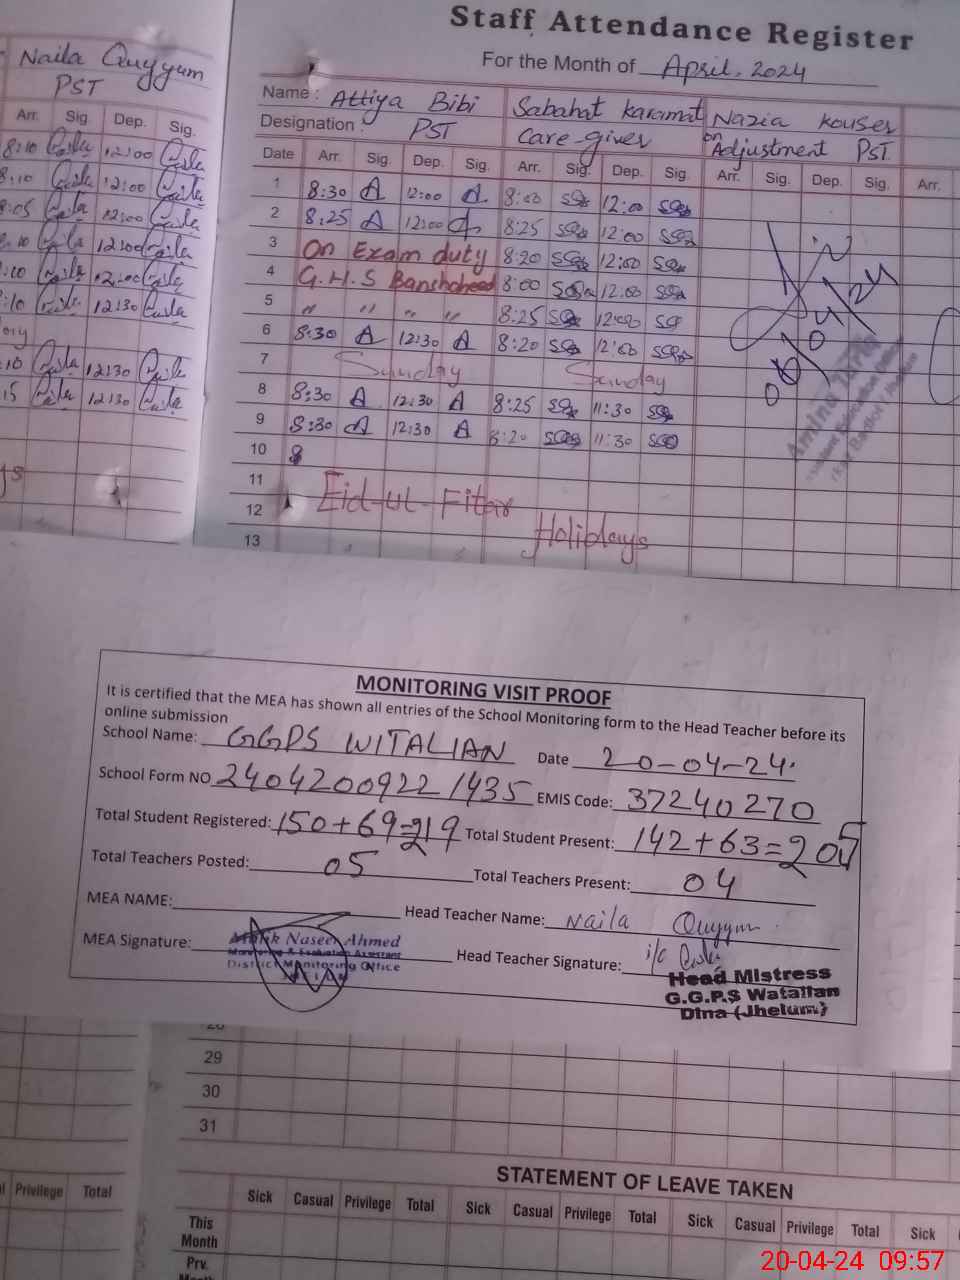 Staff Attendance Register
For the Month of April, 2024
Naila Quyyum
PST
Arr. Sig. Dep. Sig.
8:10 12:00
8:10 12:00
8:05 12:00
8:10 12:00
12:00
:10 12:30
:10 12:30
15 12:30
Name : Attiya Bibi Sabahat karamat Nazia kouser
Designation : PST Care-giver on Adjustment PST
Date Arr. Sig. Dep. Sig. Arr. Sig. Dep. Sig. Arr. Sig. Dep. Sig. Arr.
1 8:30 A 12:00 A 8:00 12:00
2 8:25 A 12:00 A 8:25 12:00
3 On Exam duty 8:20 12:00
4 G.H.S 8:00 12:00
5 " " " " 8:25 12:00
6 8:30 A 12:30 A 8:20 12:00
7 Sunday Sunday
8 8:30 A 12:30 A 8:25 11:30
9 8:30 A 12:30 A 8:20 11:30
10 8
11 Eid-ul-Fitar
12 Holidays
13
MONITORING VISIT PROOF
It is certified that the MEA has shown all entries of the School Monitoring form to the Head Teacher before its
online submission
School Name: GGPS WITALIAN Date 20-04-24.
School Form NO 24042009221435 EMIS Code: 37240270
Total Student Registered: 150+69=219 Total Student Present: 142+63=205
Total Teachers Posted: 05 Total Teachers Present: 04
MEA NAME: Head Teacher Name: Naila Quyyum
MEA Signature: Malik Naseer Ahmed Head Teacher Signature: i/c
Monitoring & Evaluation Assistant
District Monitoring Office
Head Mistress
G.G.P.S Watalian
Dina (Jhelum)
29
30
31
STATEMENT OF LEAVE TAKEN
Privilege Total Sick Casual Privilege Total Sick Casual Privilege Total Sick Casual Privilege Total Sick
This
Month
Prv.
20-04-24 09:57